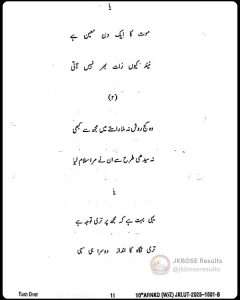 یا
موت کا ایک دن معین ہے
نیند کیوں رات بھر نہیں آتی
(۲)
وہ کج روش نہ ملا راستے میں مجھ سے کبھی
نہ سیدھی طرح سے ان نے مرا سلام لیا
یا
یہی بہت ہے کہ مجھ پر تری توجہ ہے
تری نگاہ کا انداز دوسرا ہی سہی
JKBOSE Results
@jkboseresults
Turn Over 11 10thARNKD (WZ) JKLUT-2025-1501-B